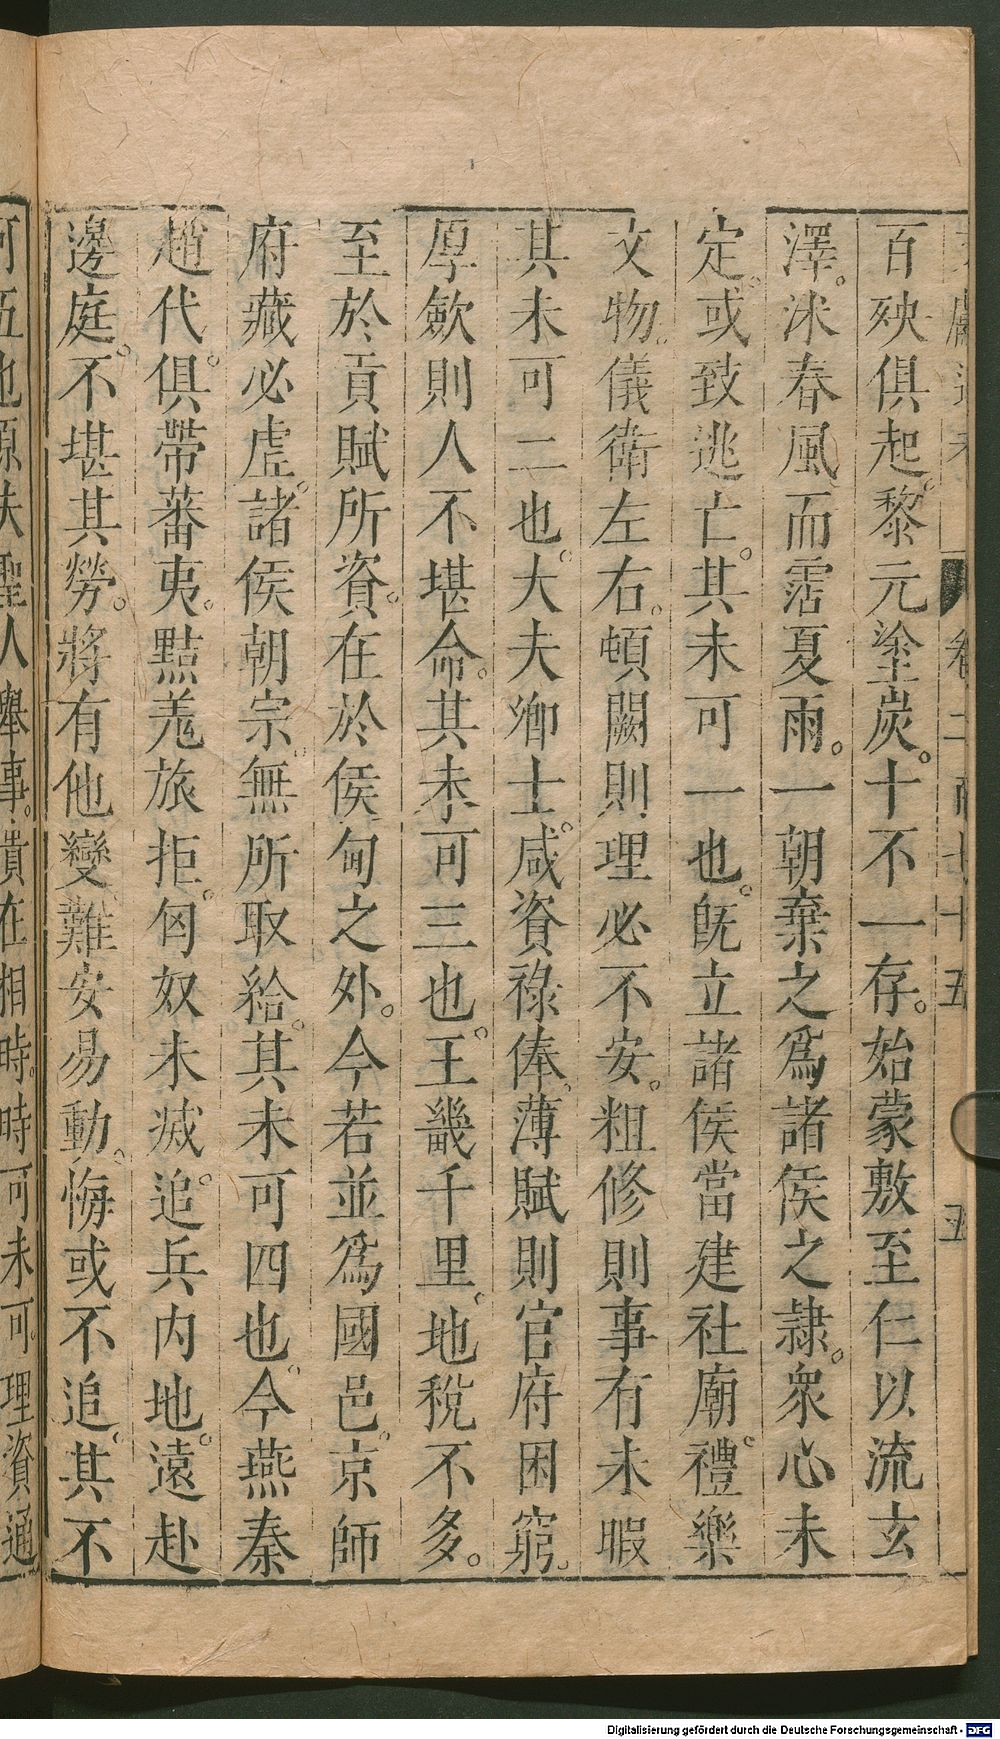 卷二
七十五
五
百殃俱起。黎元塗炭。十不一存。始蒙敷至仁以流玄
澤。沐春風而霑夏雨。一朝棄之爲諸侯之隸。衆心未
定。或致逃亡。其未可一也。旣立諸侯當建社廟。禮樂
文物。儀衛左右。頓闕則理必不安。粗修則事有未暇
其未可二也。大夫卿士。咸資祿俸。薄賦則官府困窮。
厚斂則人不堪命。其未可三也。王畿千里。地稅不多。
至於貢賦所資。在於侯甸之外。今若並爲國邑。京師
府藏必虛。諸侯朝宗。無所取給。其未可四也。今燕秦
趙代。俱帶蕃夷。黠羌旅拒。匈奴未滅。追兵內地。遠赴
邊庭。不堪其勞。將有他變。難安易動。悔或不追。其不
可五也原夫聖人舉事。貴在相時。時可未可。理資通
Digitalisierung gefördert durch die Deutsche Forschungsgemeinschaft - DFG